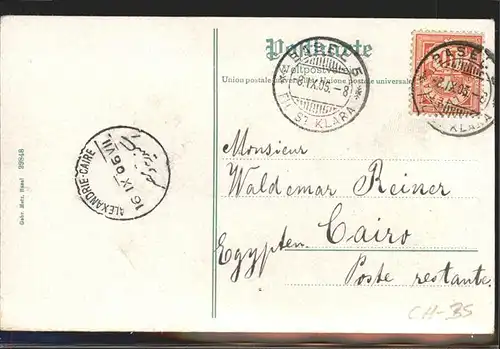 Postkarte
Weltpostverein
Union postale universelle Unione postale universale
BASEL 5
-8.IX.05.-8
FIL. ST. KLARA
BASEL 5
FIL. ST. KLARA
ALEXANDRIE-CAIRE
16 IX 05
Monsieur
Waldemar Reiner
Cairo
Egypten.
Poste restante.
Gebr. Metz, Basel 29848
CH-35